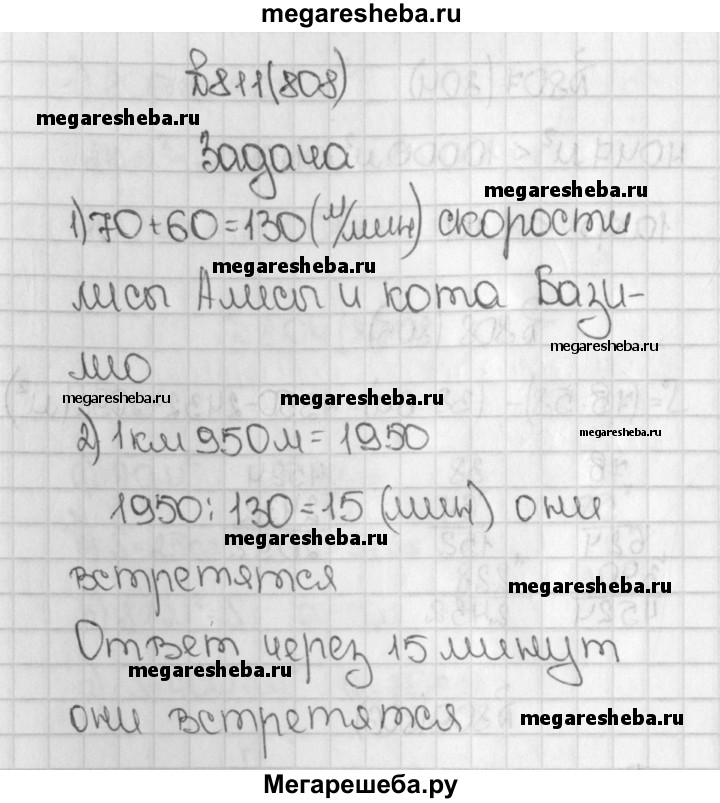 megaresheba.ru
№811(808)
megaresheba.ru
Задача
megaresheba.ru
1) 70+60=130(м/мин) скорости
megaresheba.ru
лисы Алисы и кота Бази-
megaresheba.ru
лио
megaresheba.ru
megaresheba.ru
2) 1км 950м = 1950
megaresheba.ru
1950:130=15 (мин) они
megaresheba.ru
встретятся
megaresheba.ru
Ответ через 15 минут
megaresheba.ru
они встретятся
megaresheba.ru
Мегарешеба.ру